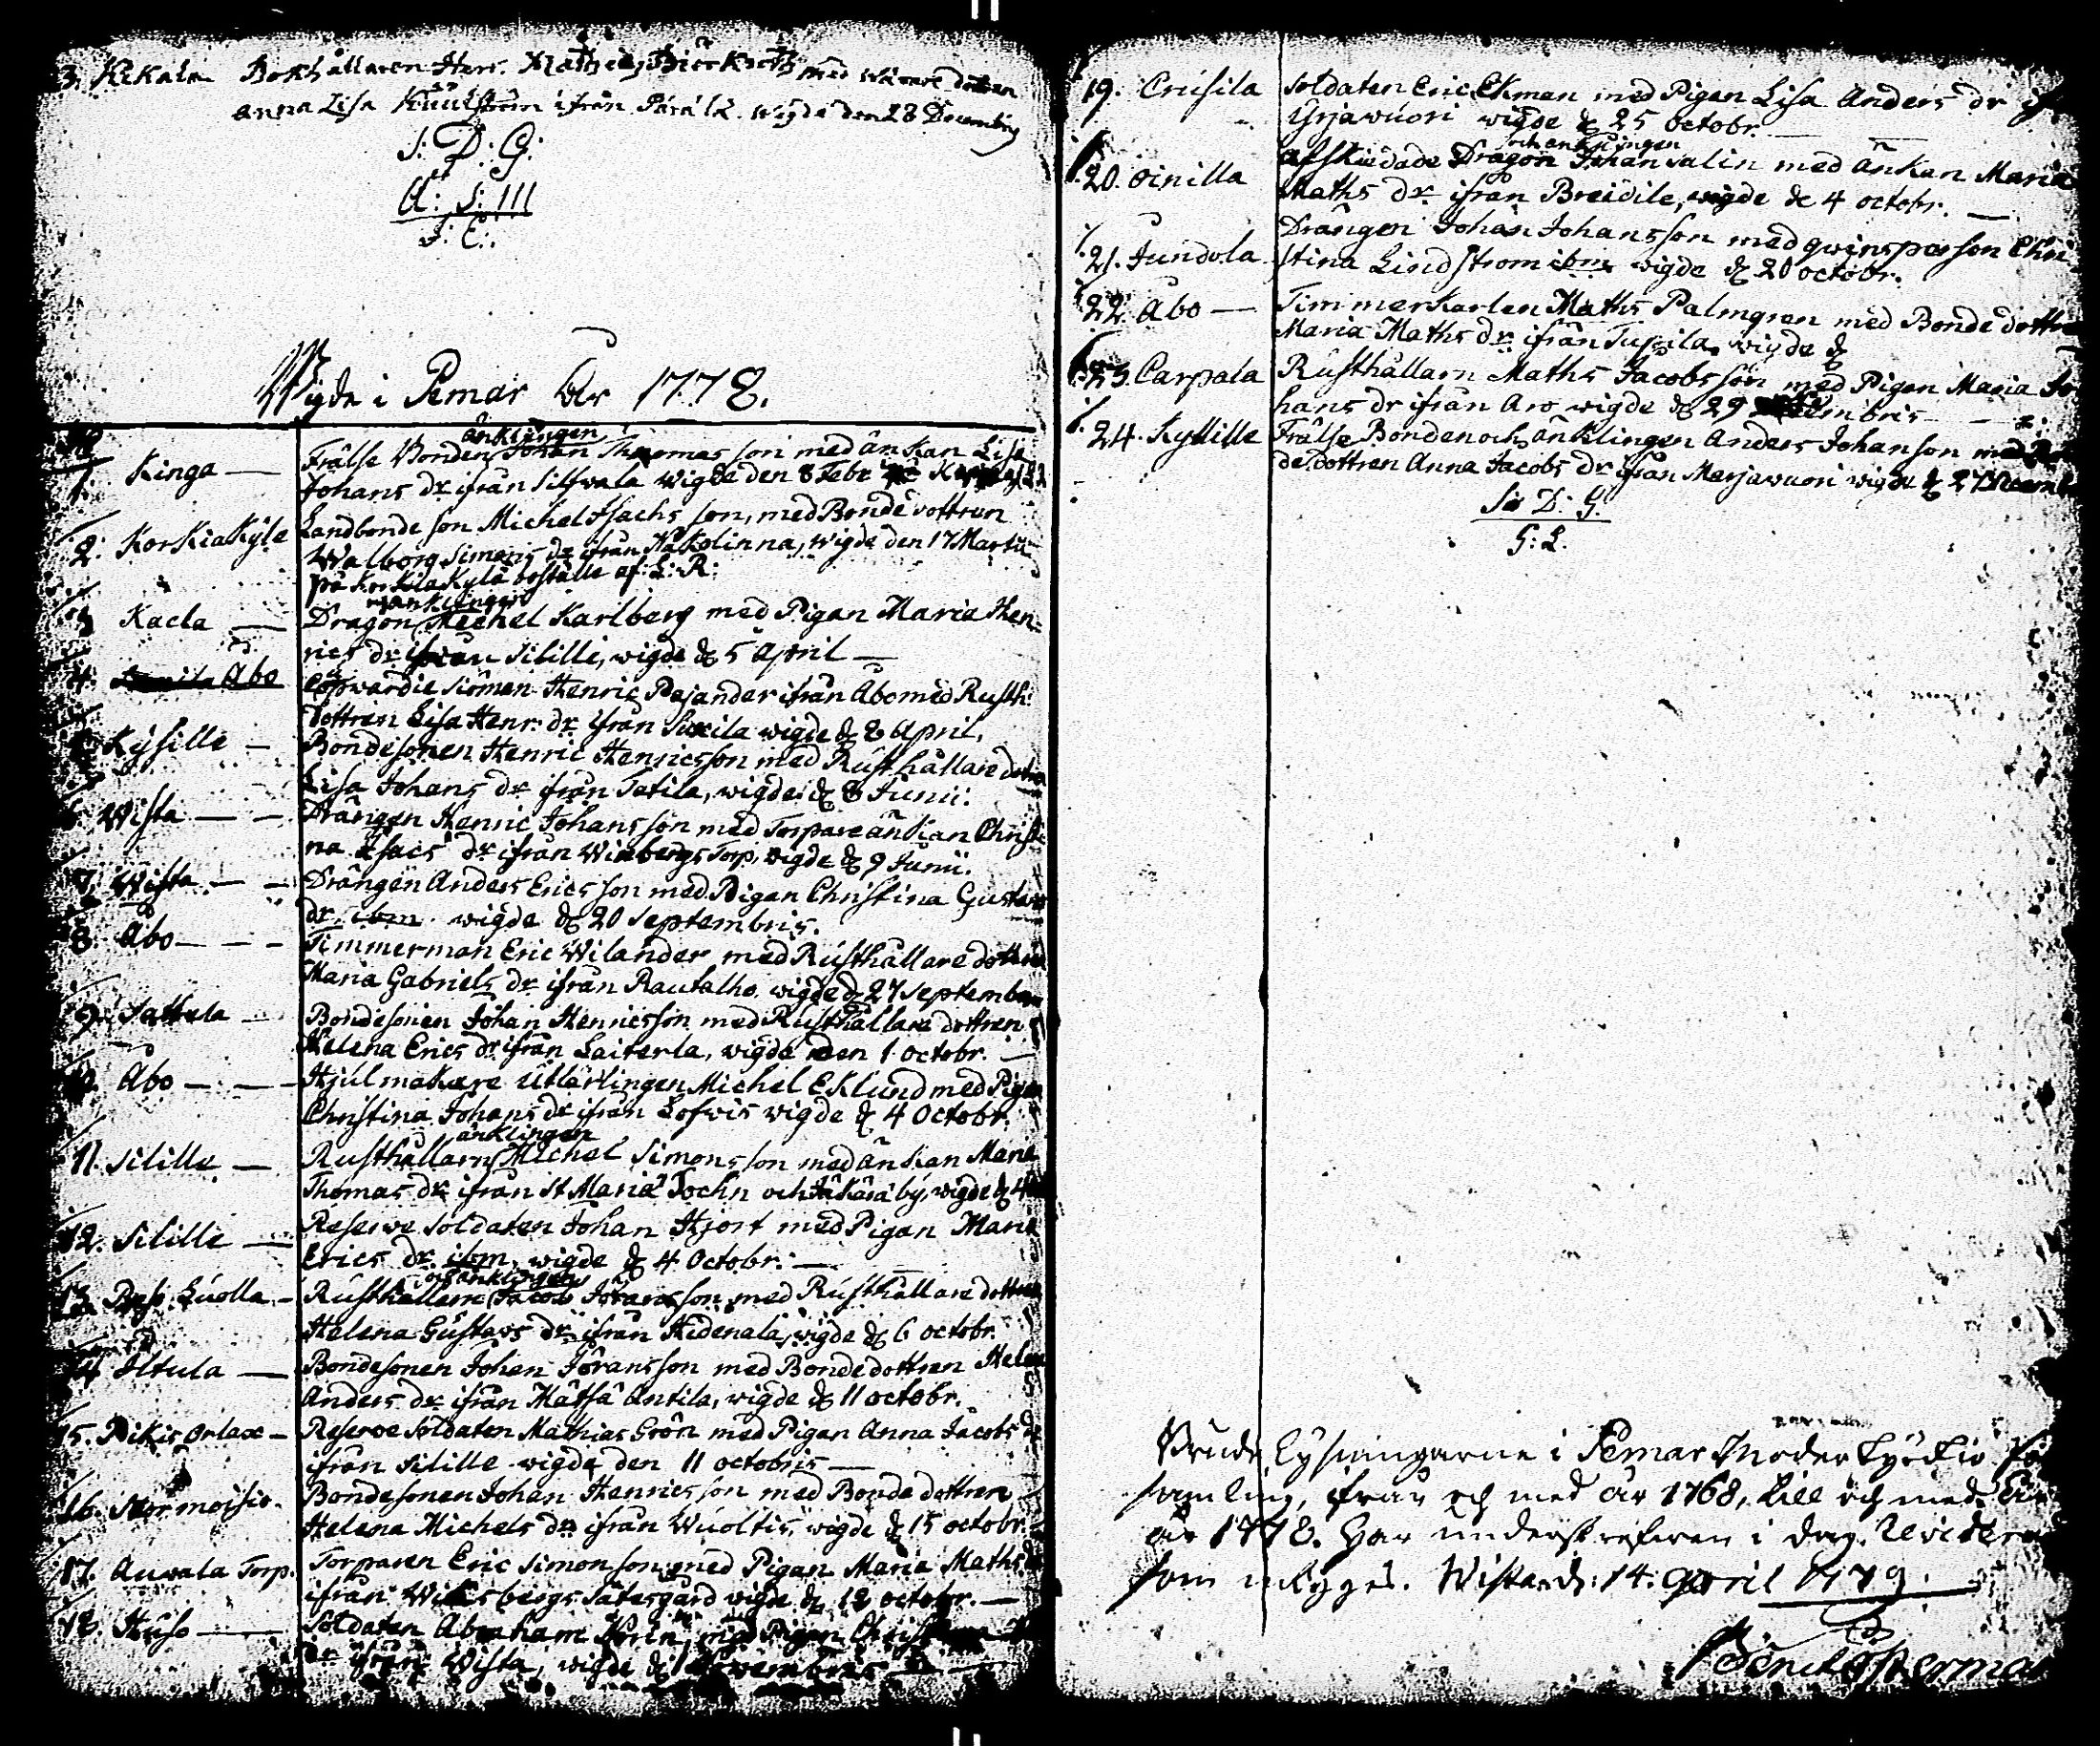 3. Kekala Bokhållaren Herr. Mathias Biörkqvist med Wärare dottren
Anna Lisa ifrån Wigde den 28 Decembris
S: D: G:
A: S: III
J: C:
Wigde i Pemar År 1778.
1. Kinga — Frälse Bonden änklingen Johan Thomasson med änkan Lisa
Johans dr ifrån Silfvala wigde den 8 Febr
2. Korkiakyla Landbonde son Michel Isachs son, med Bonde dottren
Walborg Simons dr ifrån Nakolinna, wigde den 17 Martii
på Korkiakylä boställe af: L: R:
3 Kaela — Dragon änklingen Michel Karlberg med Pigan Maria Hen-
rics dr ifrån Silille, wigde d. 5 April —
4. Åbo Cofwardie Siöman Henric Pajander ifrån Åbo med Rusth:
dottren Lisa Henr: dr ifrån Suxila wigde d. 8 April.
Kysille — Bondesonen Henric Henricsson med Rusthållare dottren
Lisa Johans dr ifrån Tatila, wigde d. 8 Junii.
6. Wista — — Drängen Henric Johansson med Torpare änkan Christi
na Isacs dr ifrån Winbergs Torp, wigde d. 9 Junii.
7. Wista — — Drängen Anders Ericsson med Pigan Christina Gustavs
dr ibm wigde d. 20 Septembris.
8. Åbo — — — Timmerman Eric Wilander med Rusthållare dottren
Maria Gabriels dr ifrån Rautalho wigde d. 27 Septembr
9. Sattela — Bondesonen Johan Henricsson med Rusthållare dottren
Helena Erics dr ifrån Laiterla, wigde den 1 octobr. —
10. Åbo — — — Hjulmakare Utlärlingen Michel Eklund med Pigan
Christina Johans dr ifrån Lofwis wigde d. 4 Octobr.
11. Silille — Rusthållarn änklingen Michel Simonsson med änkan Maria
Thomas dr ifrån St Maria Sochn och by, wigde d. 4
12. Silille — Reserve Soldaten Johan Hjort med Pigan Maria
Erics dr ibm, wigde d. 4 Octobr: —
13. Luolla — Rusthållarn och änklingen Jacob Johansson med Rusthållare dottren
Helena Gustavs dr ifrån Hedenala, wigde d. 6 octobr.
14 Iltula — Bondesonen Johan Jöransson med Bondedottren Helena
Anders dr ifrån Matfä Antila, wigde d. 11 octobr.
15. Pikis Orlax — Reserve Soldaten Mathias Grön med Pigan Anna Jacobs dr
ifrån Silille wigde den 11 octobris —
16. Bondesonen Johan Henricsson med Bonde dottren
Helena Michels dr ifrån Wuoltis, wigde d. 15 octobr.
17. Auvala Torp. Torparen Eric Simonsson med Pigan Maria Maths dr
ifrån Sätergård wigde d. 18 octobr. —
18. Huso — Soldaten Abraham med Pigan
dr ifrån Wista, wigde d.
19. Crusila Soldaten Eric Ekman med Pigan Lisa Anders dr
Yrjäwuori wigde d. 25 octobr.
20. Oinilla afskiedade Dragon och änklingen Johan Salin med änkan Maria
Maths dr ifrån Breidile, wigde d. 4 octobr. —
21. Jundola Drängen Johan Johansson med qwinsperson Chri
stina Lindstrom ibm wigde d. 20 octobr.
22. Åbo — Timmerkarlen Maths Palmgren med Bonde dottren
Maria Maths dr ifrån Tupila, wigde d.
23. Carpala Rusthållarn Maths Jacobsson med Pigan Maria Jo
hans dr ifrån Aro wigde d. 29
24. Kyllille Frälse Bonden och änklingen Anders Johanson med Bon
de dottren Anna Jacobs dr ifrån Marjawuori wigde d. 27
S: D: G:
G: L.
Brude Lysningarne i Pemar Moder Kyrkio För
samling, ifrån och med år 1768, till och med
år 1778. Har underskrefven i dag
som intyges. Wista d: 14 April 1779.